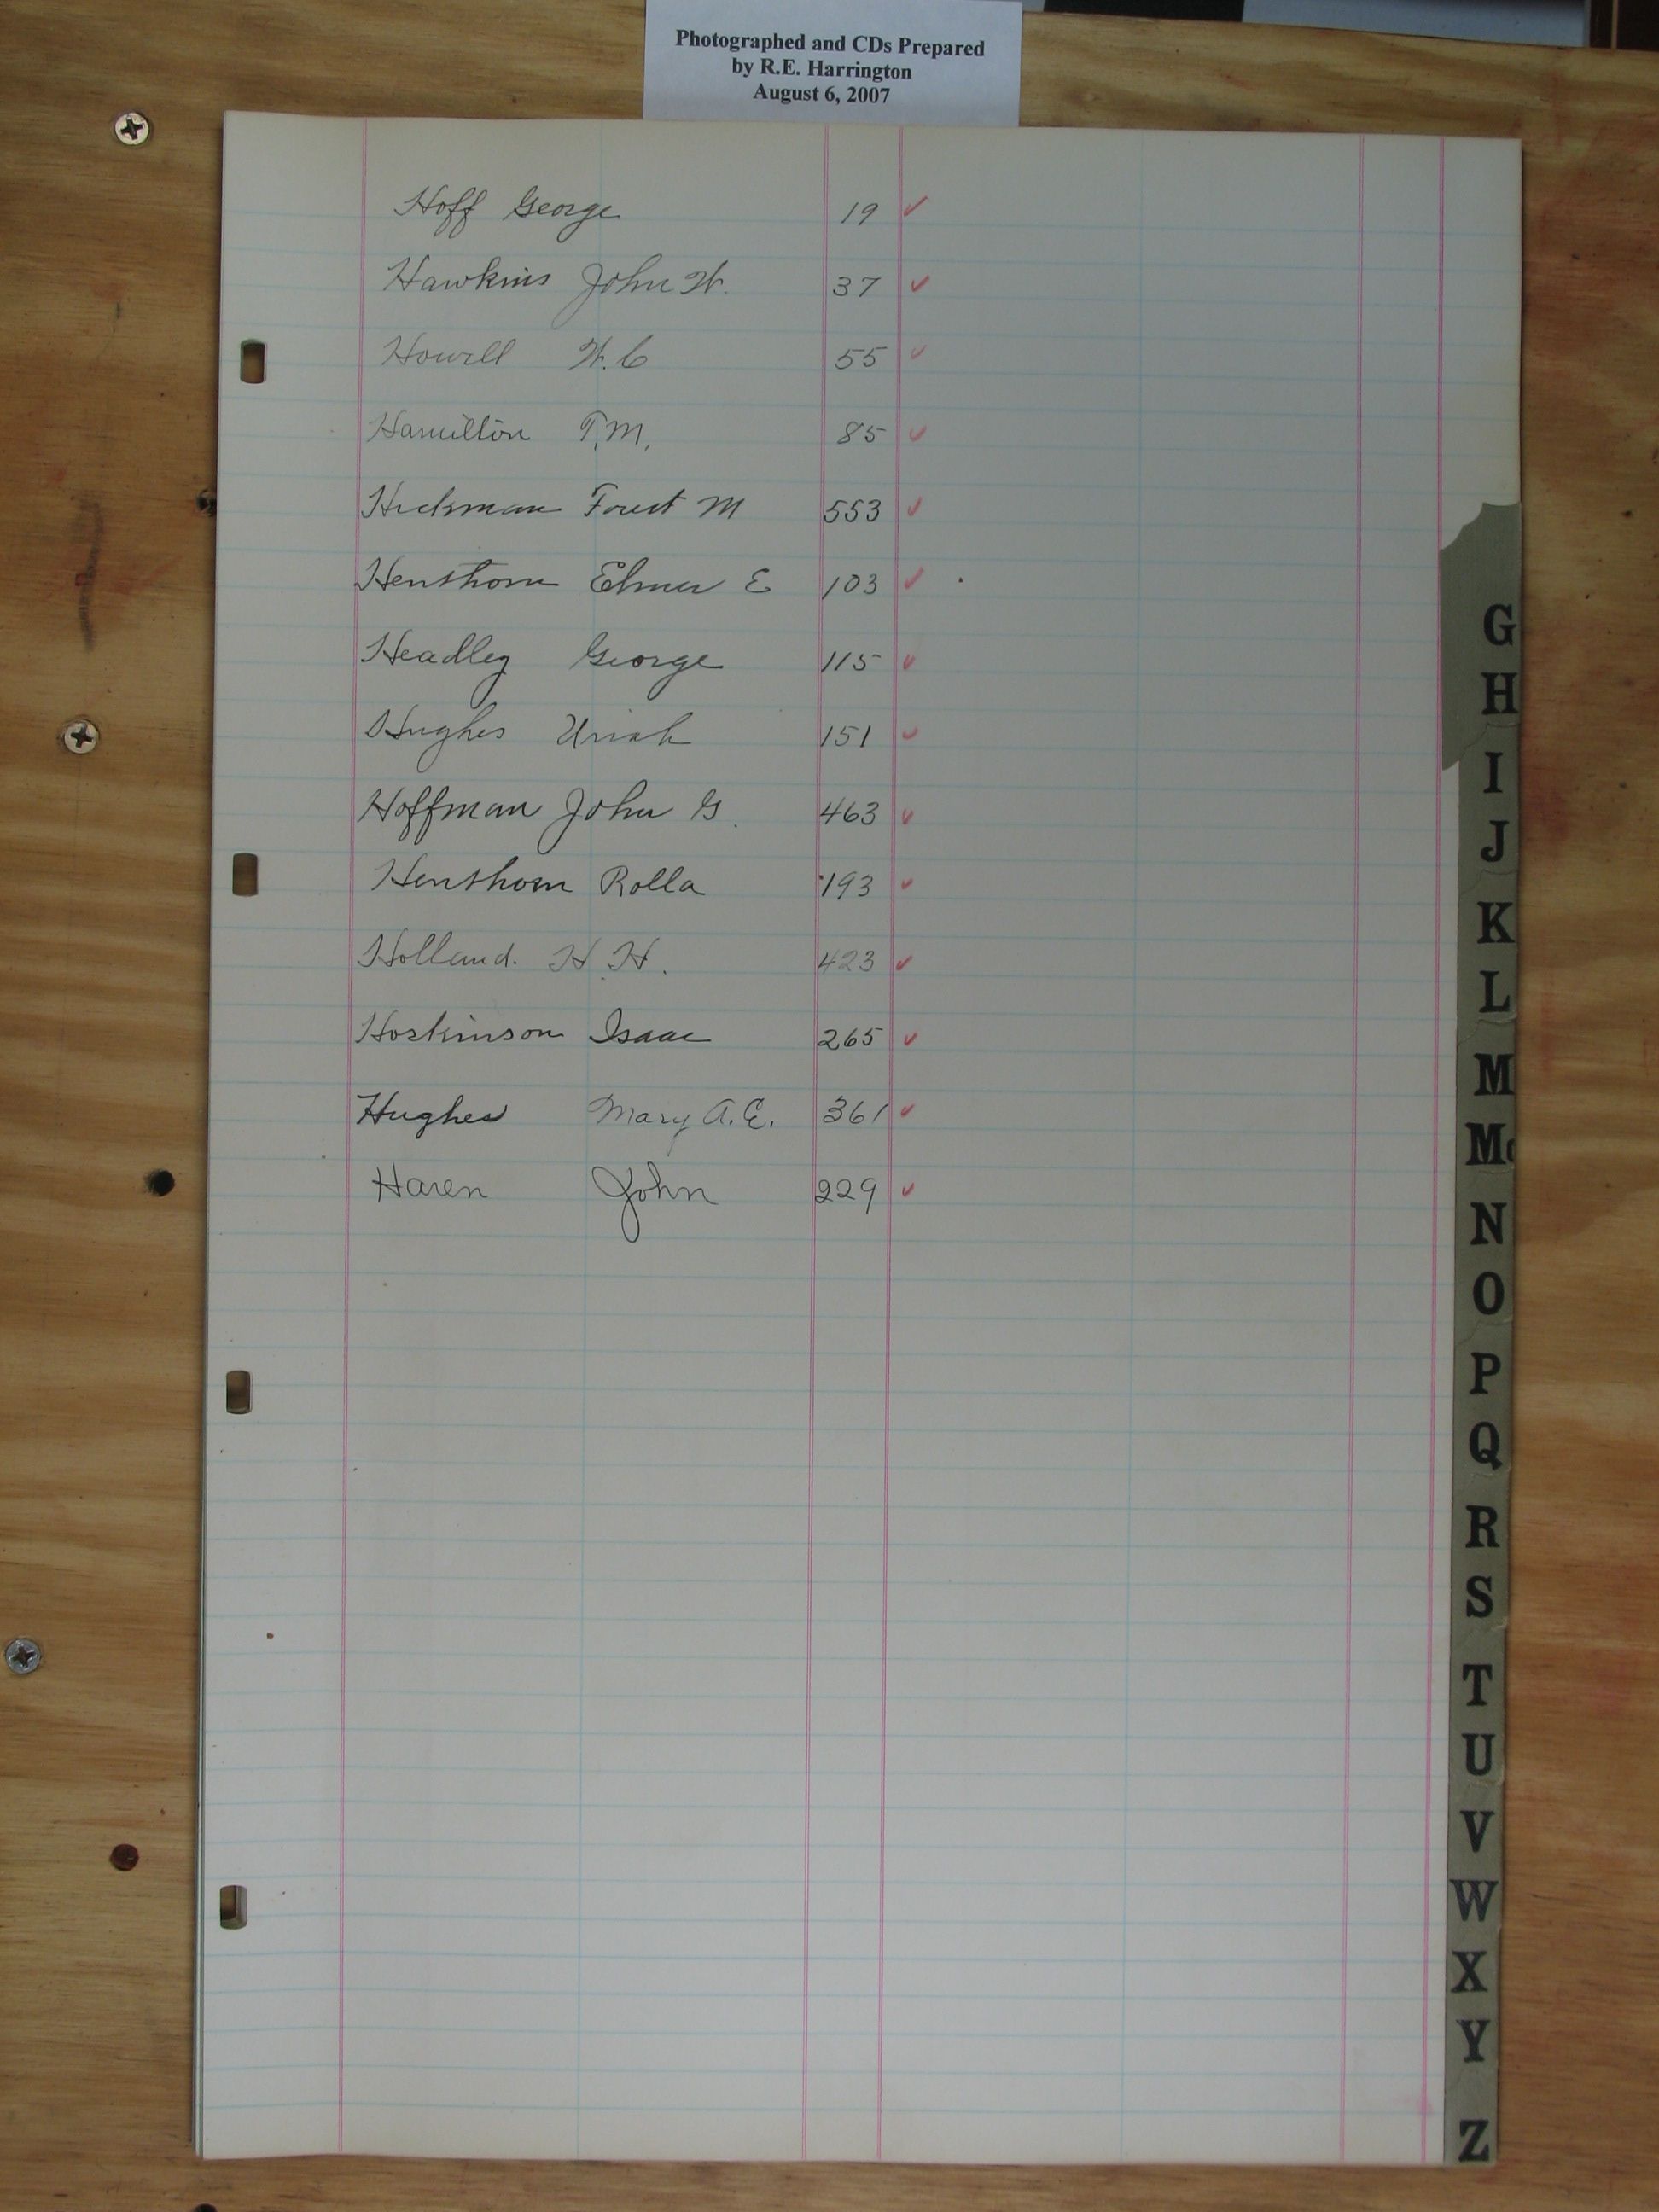 Photographed and CDs Prepared
by R.E. Harrington
August 6, 2007
Hoff George 19 ✓
Hawkins John W. 37 ✓
Howell W.C 55 ✓
Hamilton T.M. 85 ✓
Hickman Forest M 553 ✓
Henthorn Elmer E 103 ✓
Headley George 115 ✓
Hughes Uriah 151 ✓
Hoffman John G. 463 ✓
Henthorn Rolla 193 ✓
Holland. H.H. 423 ✓
Hoskinson Isaac 265 ✓
Hughes Mary A.E. 361 ✓
Haren John 229 ✓
G
H
I
J
K
L
M
Mc
N
O
P
Q
R
S
T
U
V
W
X
Y
Z